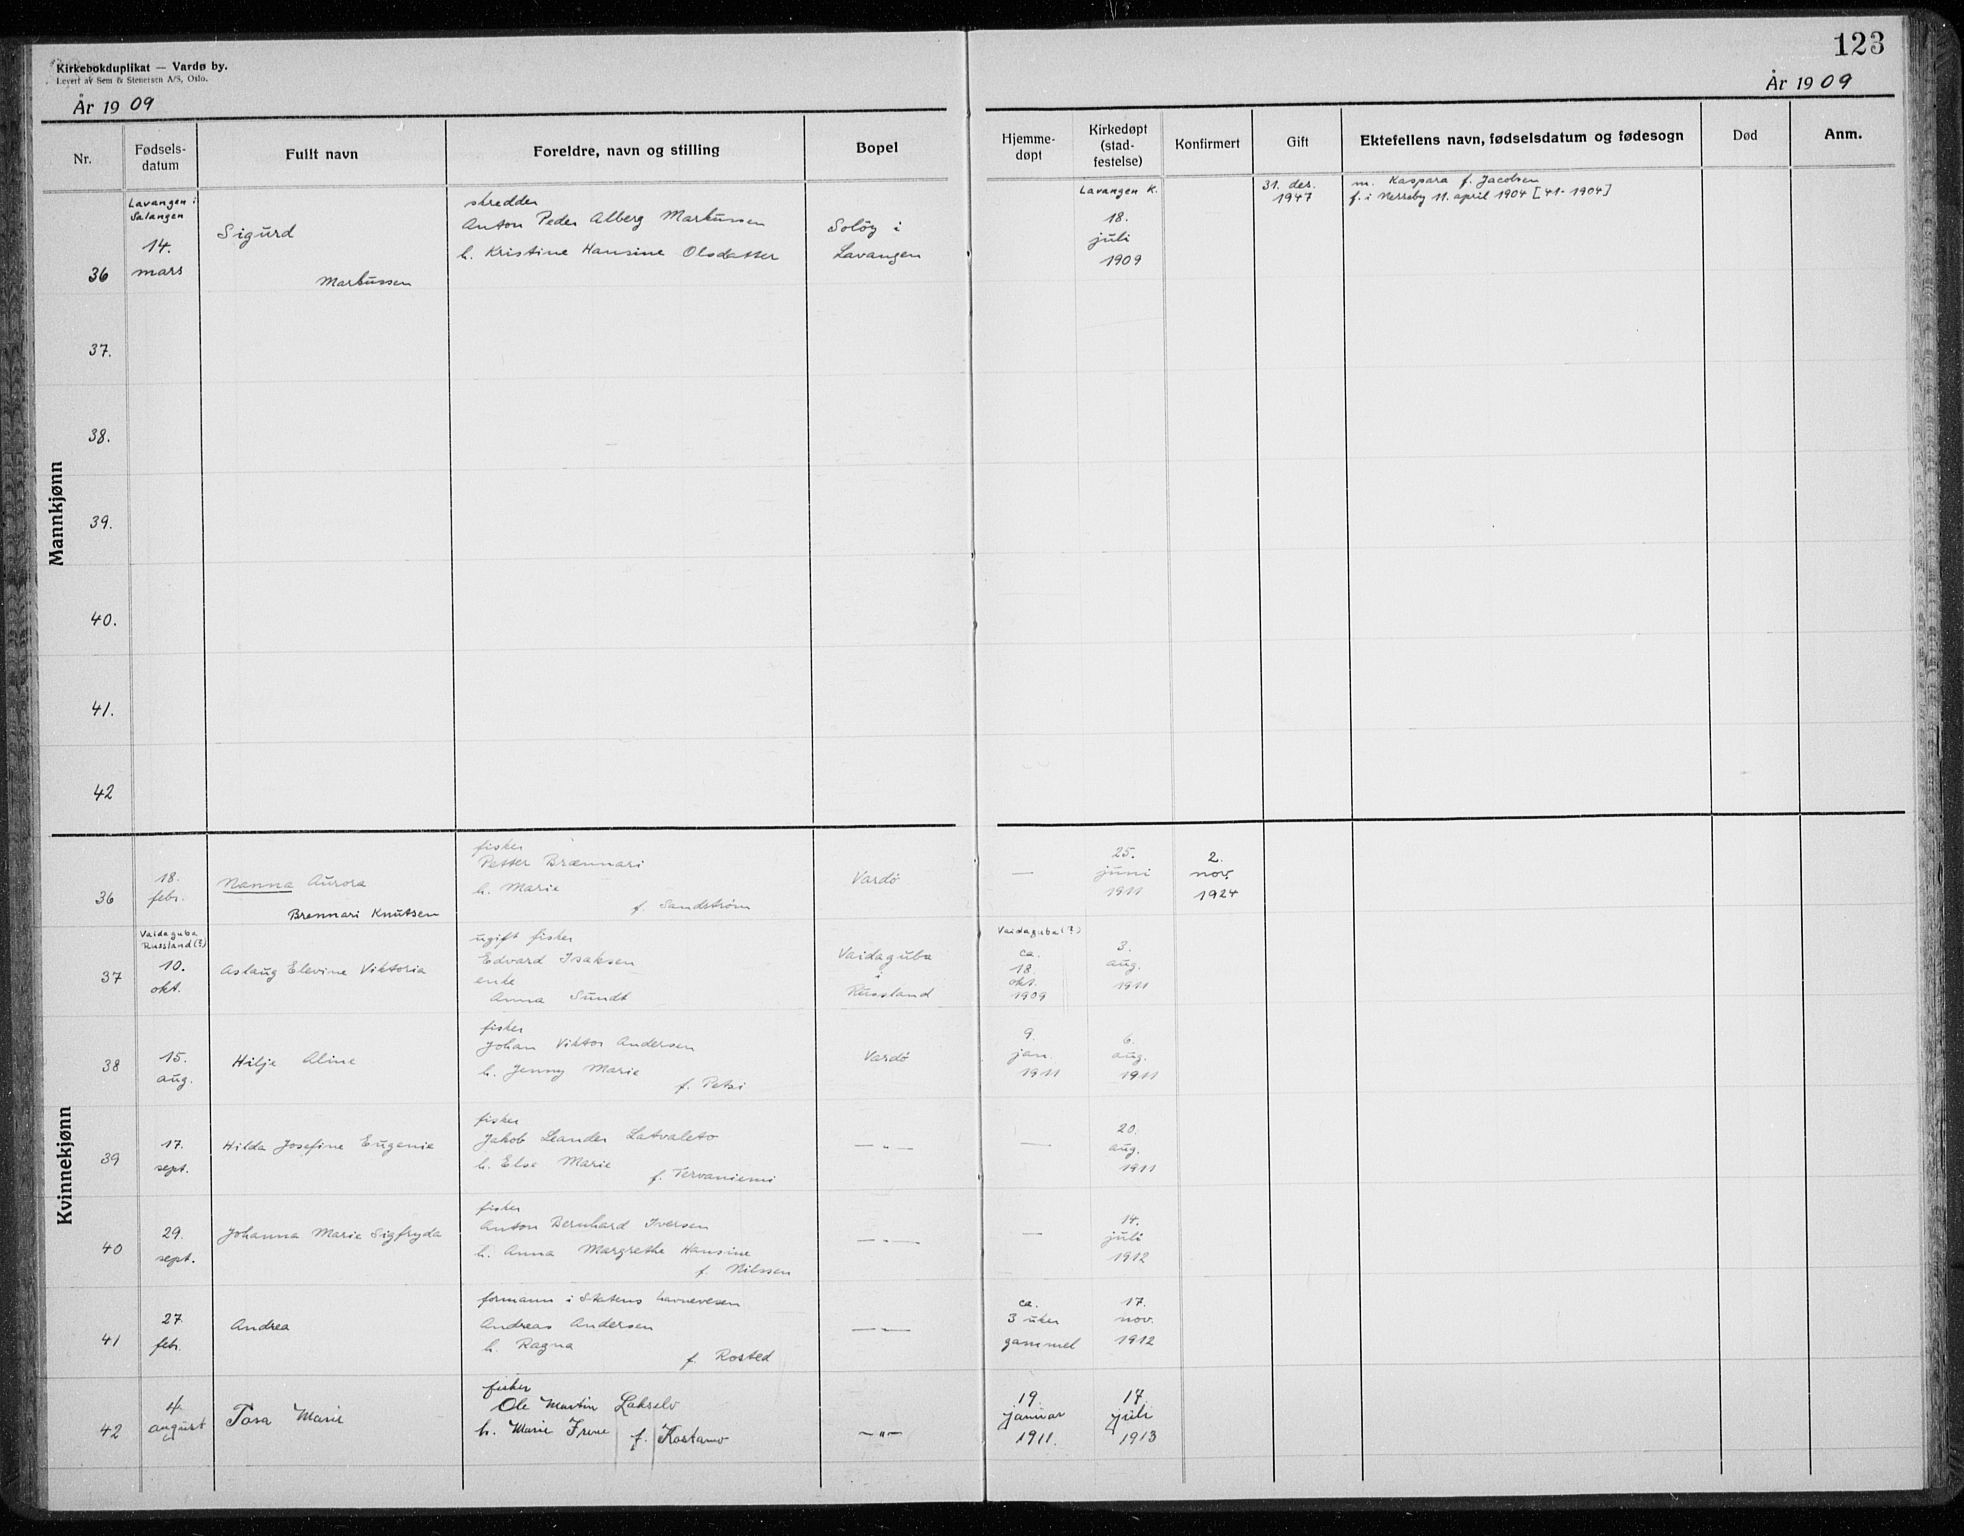 Kirkebokduplikat — Vardø by.
Levert av Sem & Stenersen A/S, Oslo.
År 1909
123
År 1909
Nr.
Fødsels-
datum
Fullt navn
Foreldre, navn og stilling
Bopel
Hjemme-
døpt
Kirkedøpt
(stad-
festelse)
Konfirmert
Gift
Ektefellens navn, fødselsdatum og fødesogn
Død
Anm.
Mannkjønn
36
Lavangen i
Salangen
14.
mars
Sigurd
Markussen
skredder
Anton Peder Alberg Markussen
h. Kristine Hansine Olsdatter
Soløy i
Lavangen
Lavangen K.
18.
juli
1909
31. des.
1947
m. Kaspara f. Jacobsen
f. i Nesseby 11. april 1904 [41-1904]
37.
38.
39.
40.
41.
42
Kvinnekjønn
36
18.
febr.
Nanna Aurora
Brennari Knutsen
fisker
Petter Brænnari
h. Marie
f. Sandstrøm
Vardø
—
25.
juni
1911
2.
nov.
1924
37
Vaidaguba
Russland (?)
10.
okt.
Aslaug Elevine Viktoria
ugift fisker
Edvard Isaksen
enke
Anna Sundt
Vaidaguba
i
Russland
Vaidaguba (?)
ca.
18.
okt.
1909
3.
aug.
1911
38
15.
aug.
Hilje Aline
fisker
Johan Viktor Andersen
h. Jenny Marie
f. Petsi
Vardø
9.
jan.
1911
6.
aug.
1911
39
17.
sept.
Hilda Josefine Eugenie
fisker
Jakob Leander Latvaleto
h. Else Marie
f. Tervaniemi
— " —
—
20.
aug.
1911
40
29.
sept.
Johanna Marie Sigfryda
fisker
Anton Bernhard Iversen
h. Anna Margrethe Hansine
f. Nilssen
— " —
—
14.
juli
1912
41
27.
febr.
Andrea
formann i Statens havnevesen
Andreas Andersen
h. Ragna
f. Rosted
— " —
ca.
3 uker
gammel
17.
nov.
1912
42
4.
august
Tora Marie
fisker
Ole Martin Lakselv
h. Marie Irene f. Kostamo
— " —
19.
januar
1911.
17.
juli
1913